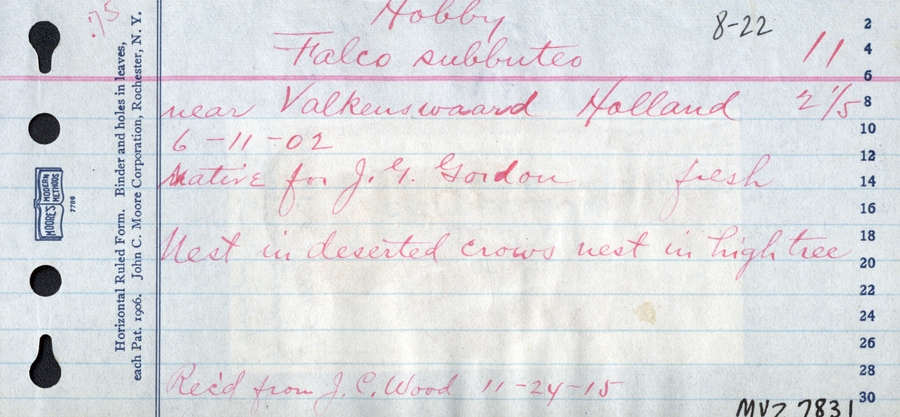 .75
Hobby 8-22
Falco subbuteo 11
near Valkenswaard Holland 2 1/5
6-11-02
Native for J. G. Gordon fresh
Nest in deserted crows nest in high tree
Rec'd from J. C. Wood 11-24-15
MVZ 7831
Horizontal Ruled Form. Binder and holes in leaves,
each Pat. 1906. John C. Moore Corporation, Rochester, N. Y.
MOORE'S MODERN METHODS
7788
2
4
6
8
10
12
14
16
18
20
22
24
26
28
30